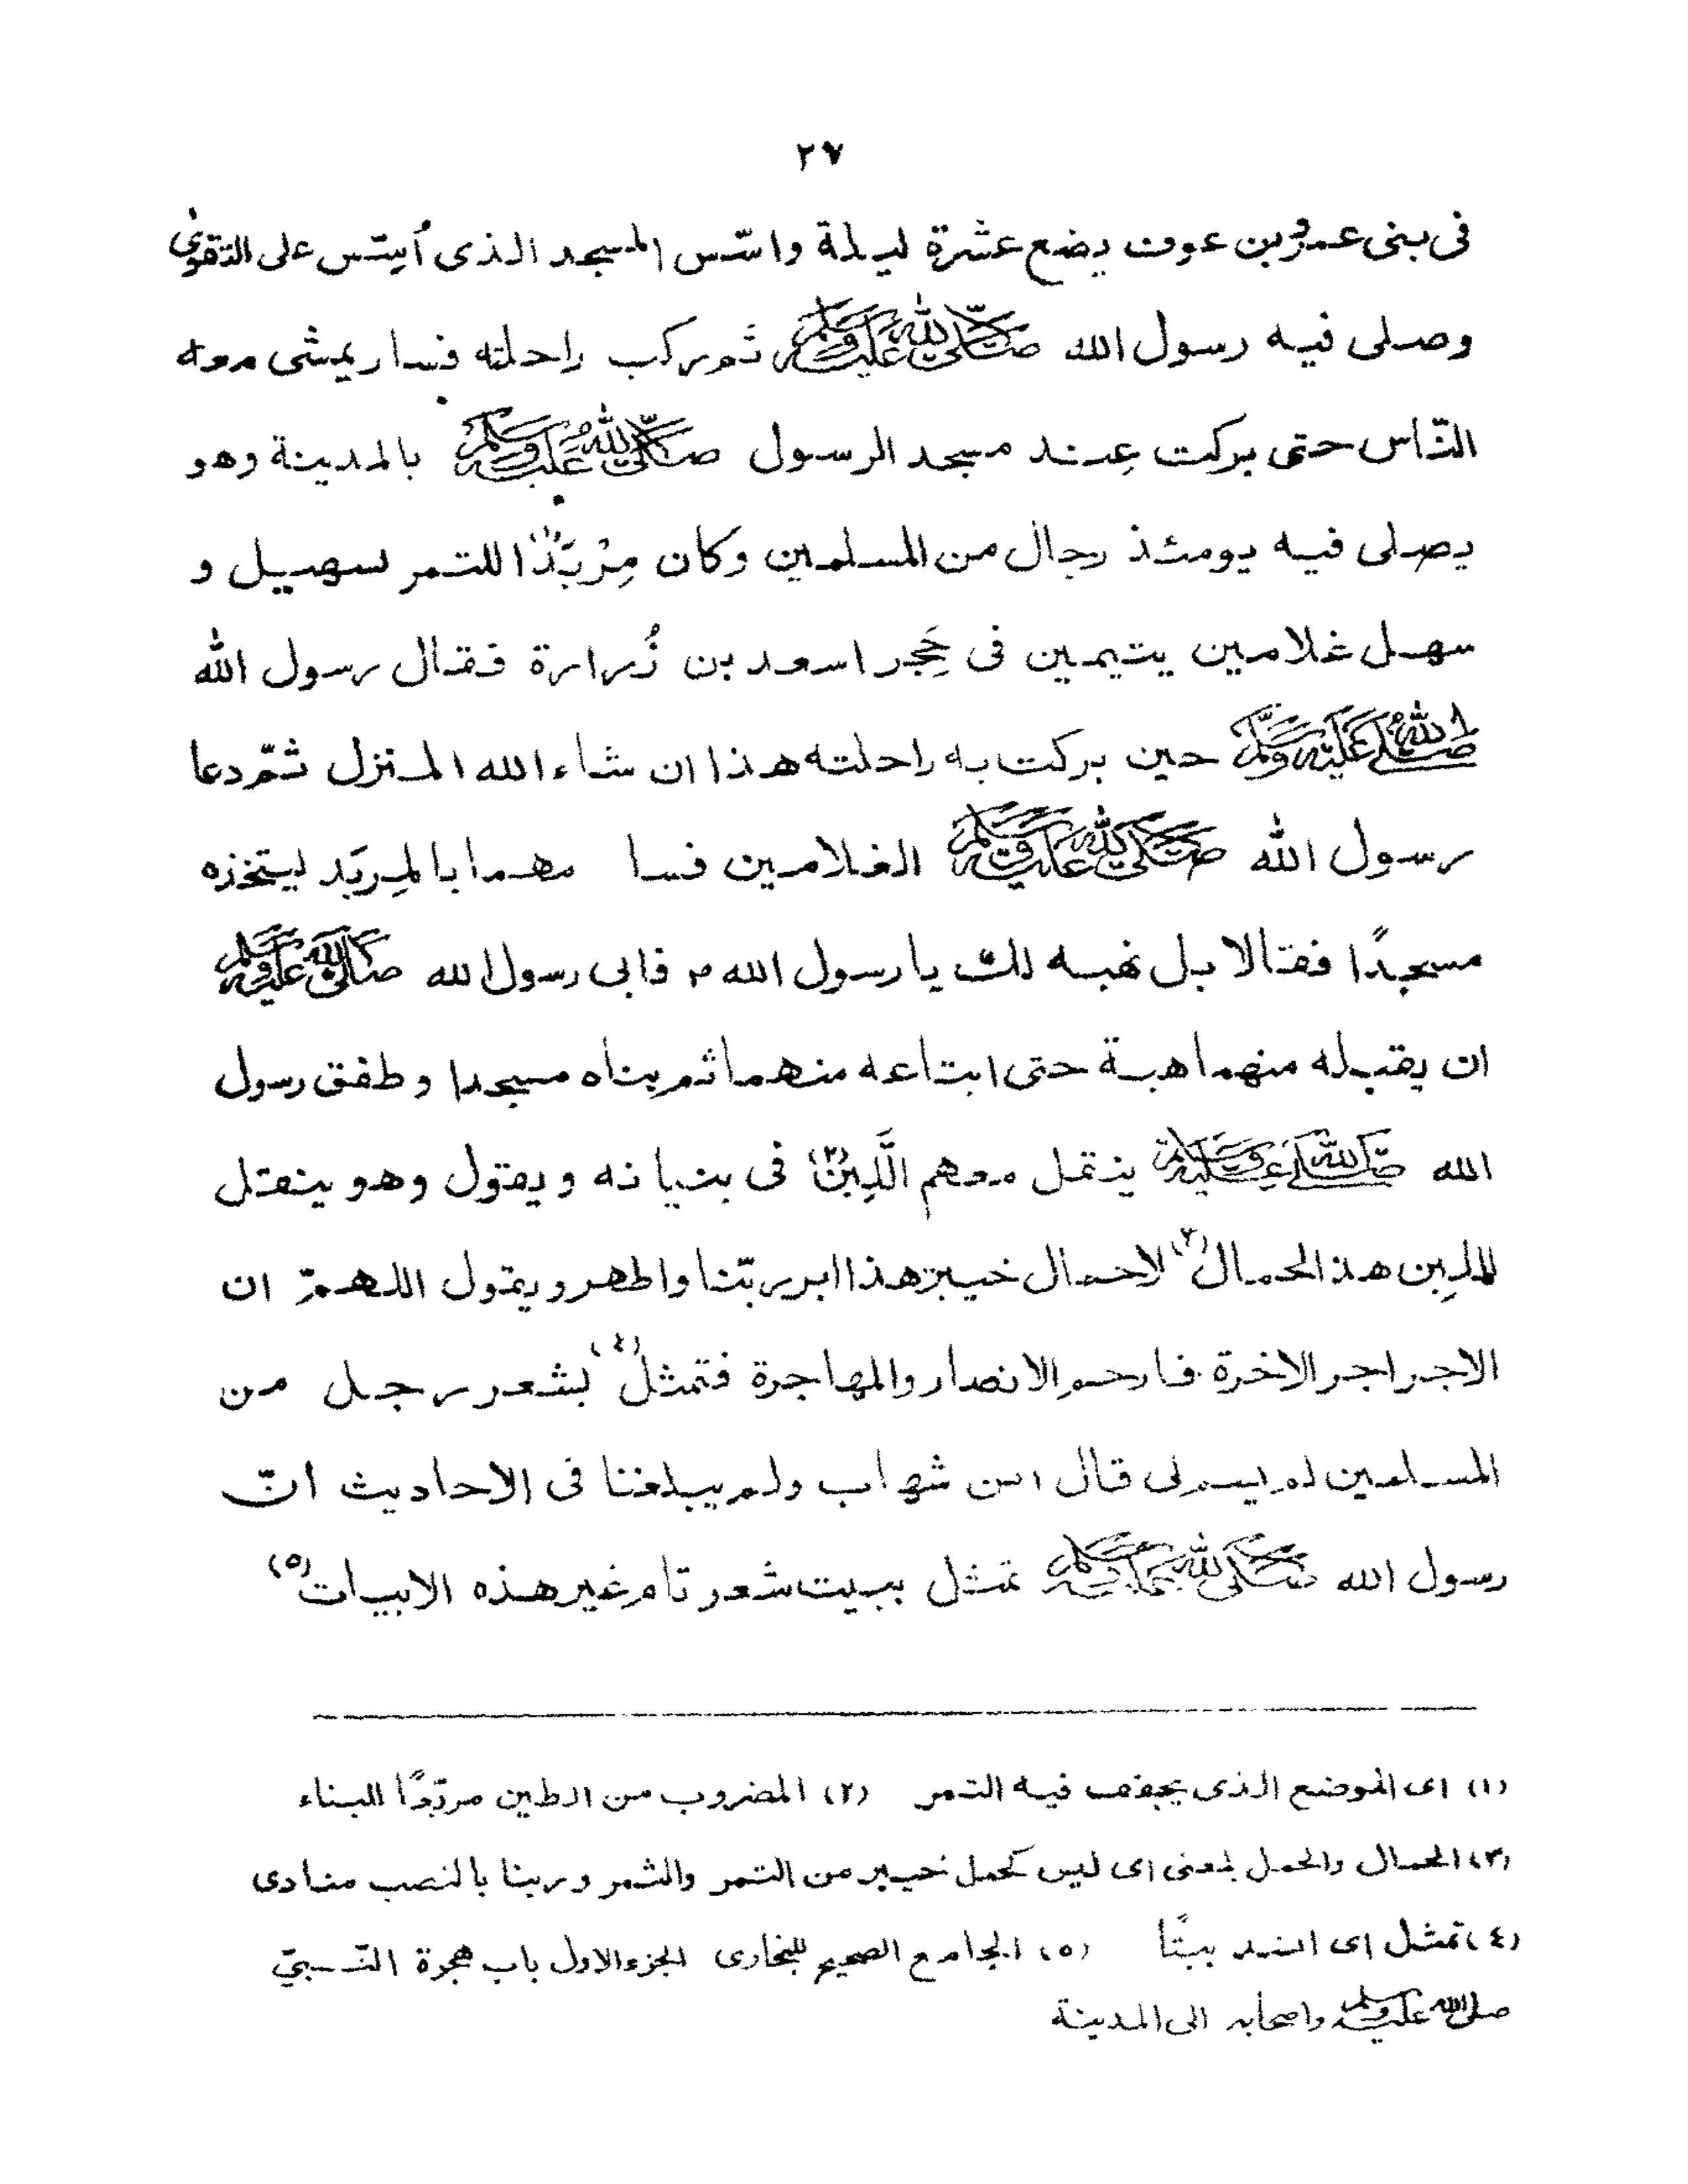 ٢٧
فی بنی عمرو بن عوف بضع عشرة لیلة واسّس المسجد الذی اُسِّس علی التقوٰی
وصلی فیه رسول الله صَلَّى اللهُ عَلَيْهِ وَسَلَّمَ ثم رکب راحلته فسار یمشی معه
النّاس حتی برکت عِند مسجد الرسول صَلَّى اللهُ عَلَيْهِ وَسَلَّمَ بالمدینة وهو
یصلی فیه یومئذ رجال من المسلمین وکان مِرْبَدًا(١) للتمر لسهیل و
سهل غلامین یتیمین فی حَجِر اسعد بن زُرارة فقال رسول الله
صَلَّى اللهُ عَلَيْهِ وَسَلَّمَ حین برکت به راحلته هذا ان شاء الله المنزل ثمّ دعا
رسول الله صَلَّى اللهُ عَلَيْهِ وَسَلَّمَ الغلامین فسا مهما بالمِربَد لیتخذه
مسجدًا فقالا بل نهبه لك یا رسول الله م فابی رسول الله صَلَّى اللهُ عَلَيْهِ وَسَلَّمَ
ان یقبله منهما هبة حتی ابتاعه منهما ثم بناه مسجدا وطفق رسول
الله صَلَّى اللهُ عَلَيْهِ وَسَلَّمَ ینقل معهم اللَّبِنَ(٢) فی بنیانه ویقول وهو ینقل
اللبِن هذا الحمال(٣) لاحمال خیبر هذا ابر ربّنا واطهر ویقول اللهمّ ان
الاجر اجر الاخرة فارحم الانصار والمهاجرة فتمثل(٤) بشعر رجل من
المسلمین لم یسم لی قال ابن شهاب ولم یبلغنا فی الاحادیث انّ
رسول الله صَلَّى اللهُ عَلَيْهِ وَسَلَّمَ تمثل ببیت شعر تام غیر هذه الابیات(٥)
(١) ای الموضع الذی یجفف فیه التمر (٢) المضروب من الطین مربّعًا للبناء
(٣) الحمال والحمل بمعنی ای لیس کحمل خیبر من التمر والثمر وربنا بالنصب منادی
(٤) تمثل ای انشد بیتًا (٥) الجامع الصحیح للبخاری الجزء الاول باب هجرة النّبیّ
صلى الله عليه وسلم واصحابه الی المدینة